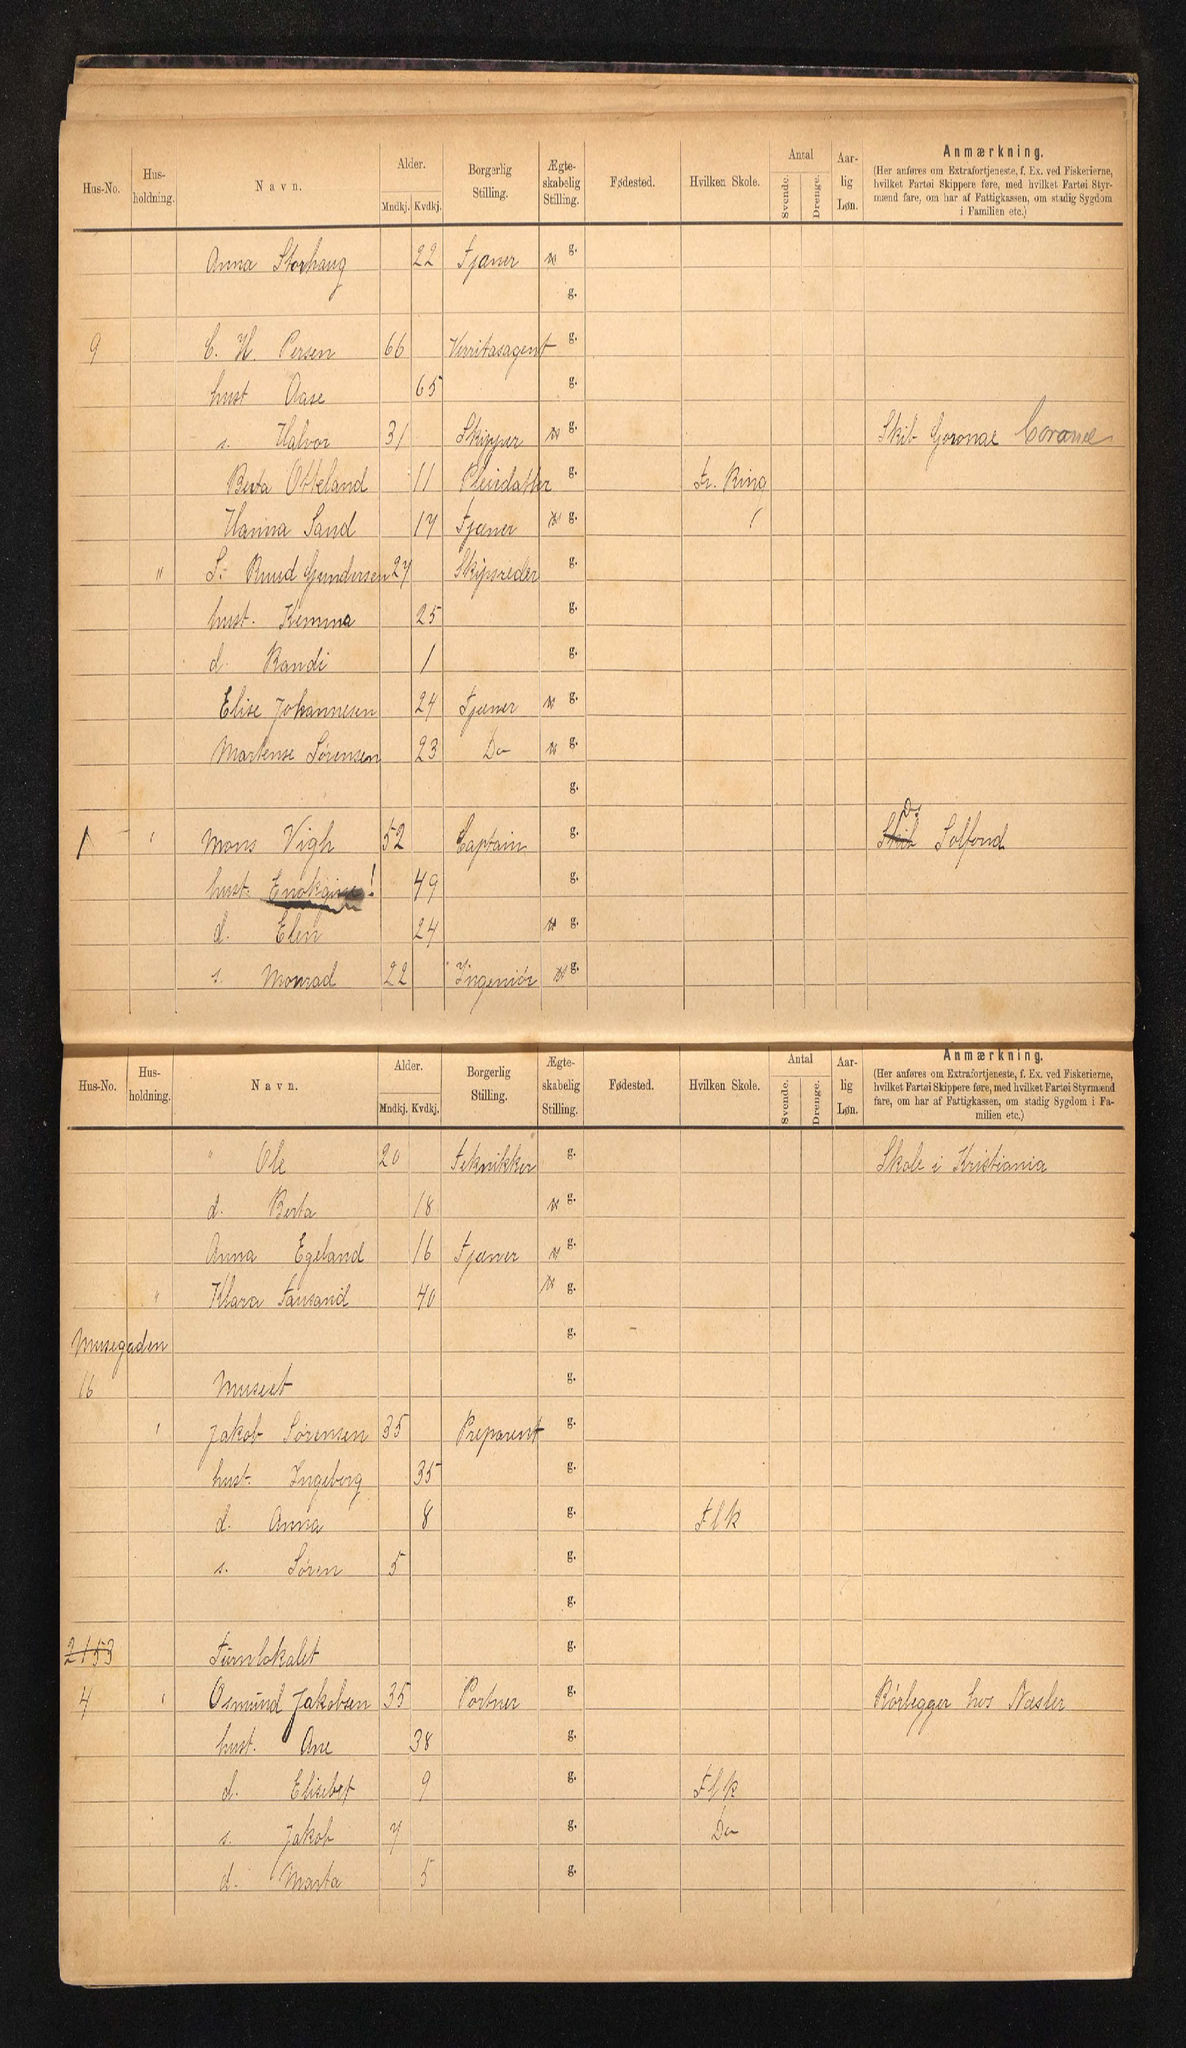 Hus-No. Hus-holdning. Navn. Alder. Mndkj. Kvdkj. Borgerlig Stilling. Ægte-skabelig Stilling. Fødested. Hvilken Skole. Antal Svende. Drenge. Aar-lig Løn. Anmærkning.
(Her anføres om Extrafortjeneste, f. Ex. ved Fiskerierne,
hvilket Fartøi Skippere føre, med hvilket Fartøi Styr-
mænd fare, om har af Fattigkassen, om stadig Sygdom
i Familien etc.)
Anna Storhaug 22 Tjæner g.
g.
9 C. H. Persen 66 Verritasagent g.
hust Aase 65 g.
s. Halvor 31 Skipper g. Skib Coronae
Berta Otteland 11 Pleiedatter g. Fr. Ring
Hanna Sand 17 Tjæner g.
" S. Ruud Gundersen 27 Skipsreder g.
hust. Kemma 25 g.
d. Randi 1 g.
Elise Johannesen 24 Tjæner g.
Martense Sørensen 23 Do g.
g.
1 ' Mons Vigh 52 Captain g. Solfond
hust. ! 49 g.
d. Elen 24 g.
s. Monrad 22 Ingeniør g.
Hus-No. Hus-holdning. Navn. Alder. Mndkj. Kvdkj. Borgerlig Stilling. Ægte-skabelig Stilling. Fødested. Hvilken Skole. Antal Svende. Drenge. Aar-lig Løn. Anmærkning.
(Her anføres om Extrafortjeneste, f. Ex. ved Fiskerierne,
hvilket Fartøi Skippere føre, med hvilket Fartøi Styrmænd
fare, om har af Fattigkassen, om stadig Sygdom i Fa-
milien etc.)
" Ole 20 Teknikker g. Skole i Kristiania
d. Berta 18 g.
Anna Egeland 16 Tjæner g.
" Klara Tansand 40 g.
Musegaden g.
16 Museet g.
' Jakob Sørensen 35 Preparent g.
hust. Ingeborg 35 g.
d. Anna 8 g. Flk
s. Søren 5 g.
g.
2153 Turnlokalet g.
4 ' Osmund Jakobsen 35 Portner g. Rörlegger hos Næsler
hust. Ane 38 g.
d. Elisebet 9 g. Flk
s. Jakob 7 g. Do
d. Marta 5 g.